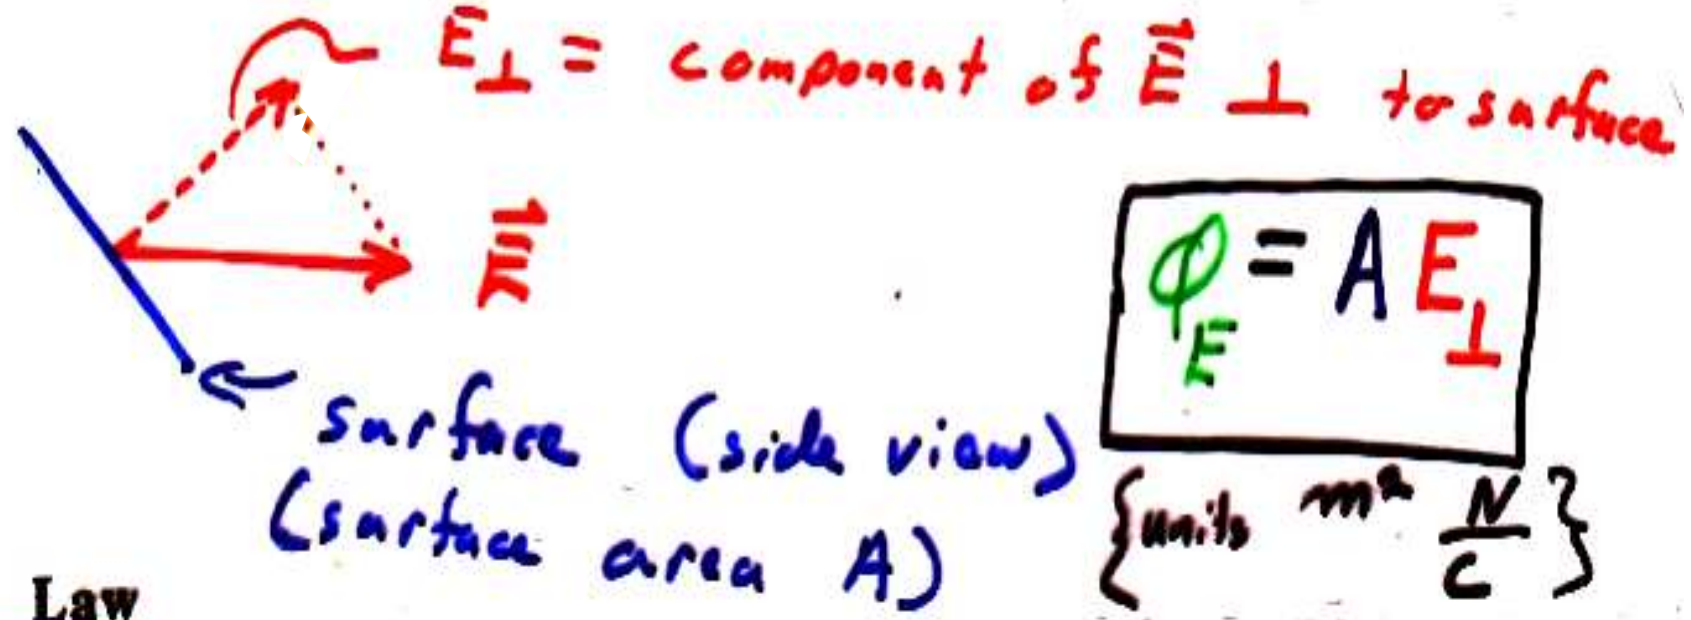 E⊥ = component of E⃗ ⊥ to surface
E⃗
ϕ_E = A E⊥
surface (side view)
(surface area A)
{units m² N/C}
Law